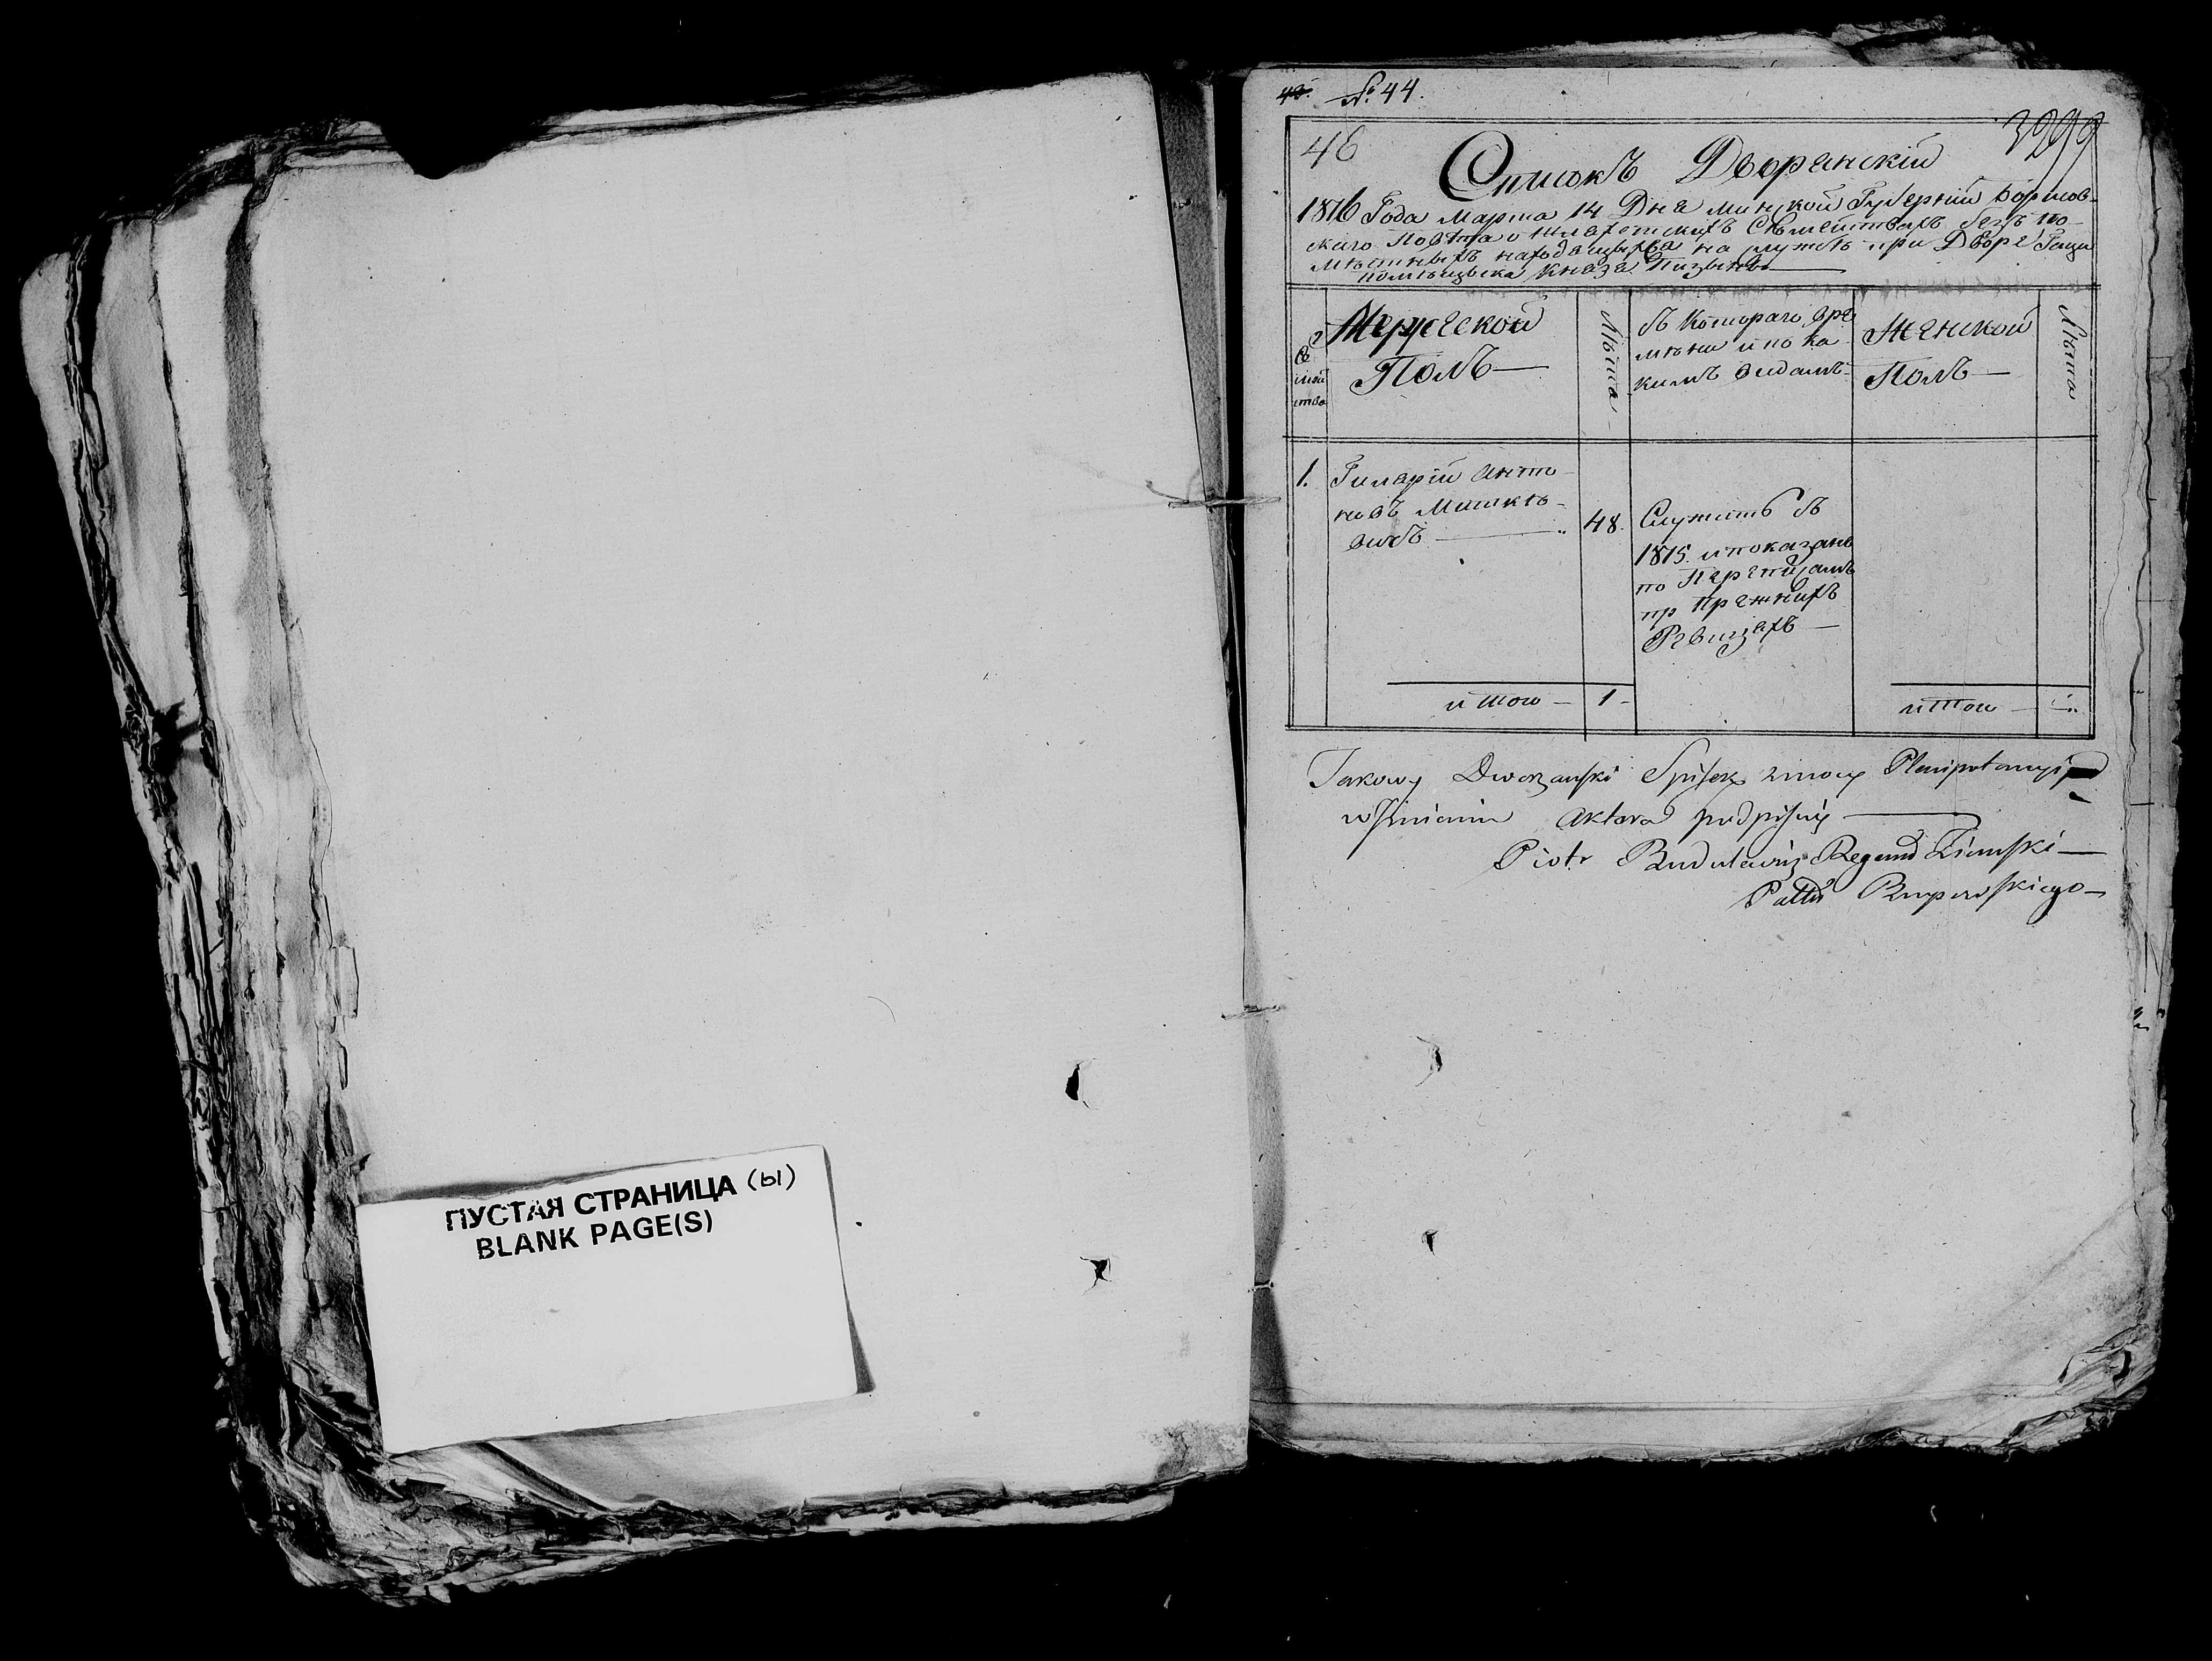 ПУСТАЯ СТРАНИЦА (ы)
BLANK PAGE(S)
48. №. 44.
46
Списокъ Дворянскій
1816 Года Марта 14 Дня Минской Губерніи Борисов-
скаго Повѣта о шляхетскихъ Сѣмействахъ безъ по-
мѣстныхъ находящихся на службѣ при Дворѣ
помѣщика Князя
Се
мей
ства
Мужеской
Полъ
Лѣта
Съ Котораго вре
мѣни и по ка
кимъ видамъ
Женской
Полъ
Лѣта
1. Гиларій Анто
новъ Мицке
вичъ
48.
Служитъ съ
1815. и показанъ
по Переписямъ
пр Прежнихъ
Ревизіяхъ
итого 1
итого
Takowy Dworzanski Spisek z mocy Plenipotencyi
w Imieniu Aktora podpisuię
Piotr Regent Ziemski
Pattu